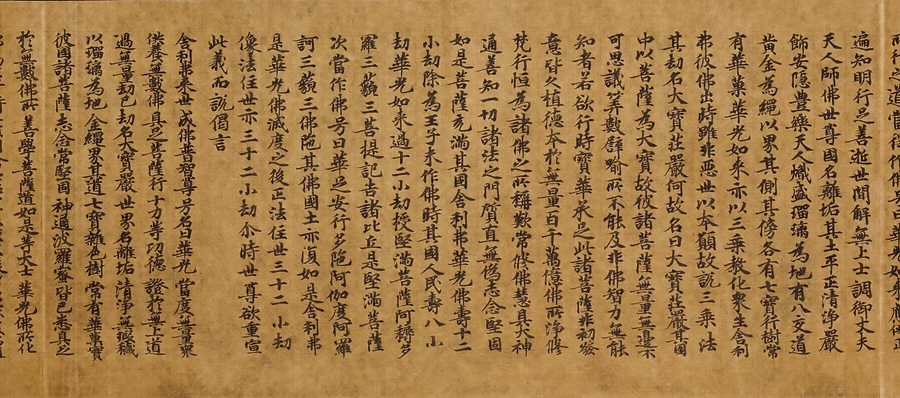 遍知明行足善逝世間解無上士調御丈夫
天人師佛世尊國名離垢其土平正清淨嚴
飾安隱豊樂天人熾盛瑠璃為地有八交道
黄金為繩以界其側其傍各有七寶行樹常
有華菓華光如来亦以三乗教化衆生舎利
弗彼佛出時雖非惡世以本願故說三乗法
其劫名大寶莊嚴何故名曰大寶莊嚴其國
中以菩薩為大寶故彼諸菩薩無量無邊不
可思議筭數譬喻所不能及非佛智力無能
知者若欲行時寶華承足此諸菩薩非初發
意皆久植德本於無量百千萬億佛所淨修
梵行恒為諸佛之所稱歎常修佛慧具大神
通善知一切諸法之門質直無偽志念堅固
如是菩薩充滿其國舎利弗華光佛壽十二
小劫除為王子未作佛時其國人民壽八小
劫華光如来過十二小劫授堅滿菩薩阿耨多
羅三藐三菩提記告諸比丘是堅滿菩薩
次當作佛号曰華足安行多陁阿伽度阿羅
訶三藐三佛陁其佛國土亦復如是舎利弗
是華光佛滅度之後正法住世三十二小劫
像法住世亦三十二小劫尒時世尊欲重宣
此義而說偈言
舎利弗来世 成佛普智尊 号名曰華光 當度無量衆
供養無數佛 具足菩薩行 十力等功德 證於無上道
過無量劫已 劫名大寶嚴 世界名離垢 清淨無瑕穢
以瑠璃為地 金繩界其道 七寶雜色樹 常有華菓實
彼國諸菩薩 志念常堅固 神通波羅蜜 皆已悉具足
於無數佛所 善學菩薩道 如是等大士 華光佛所化